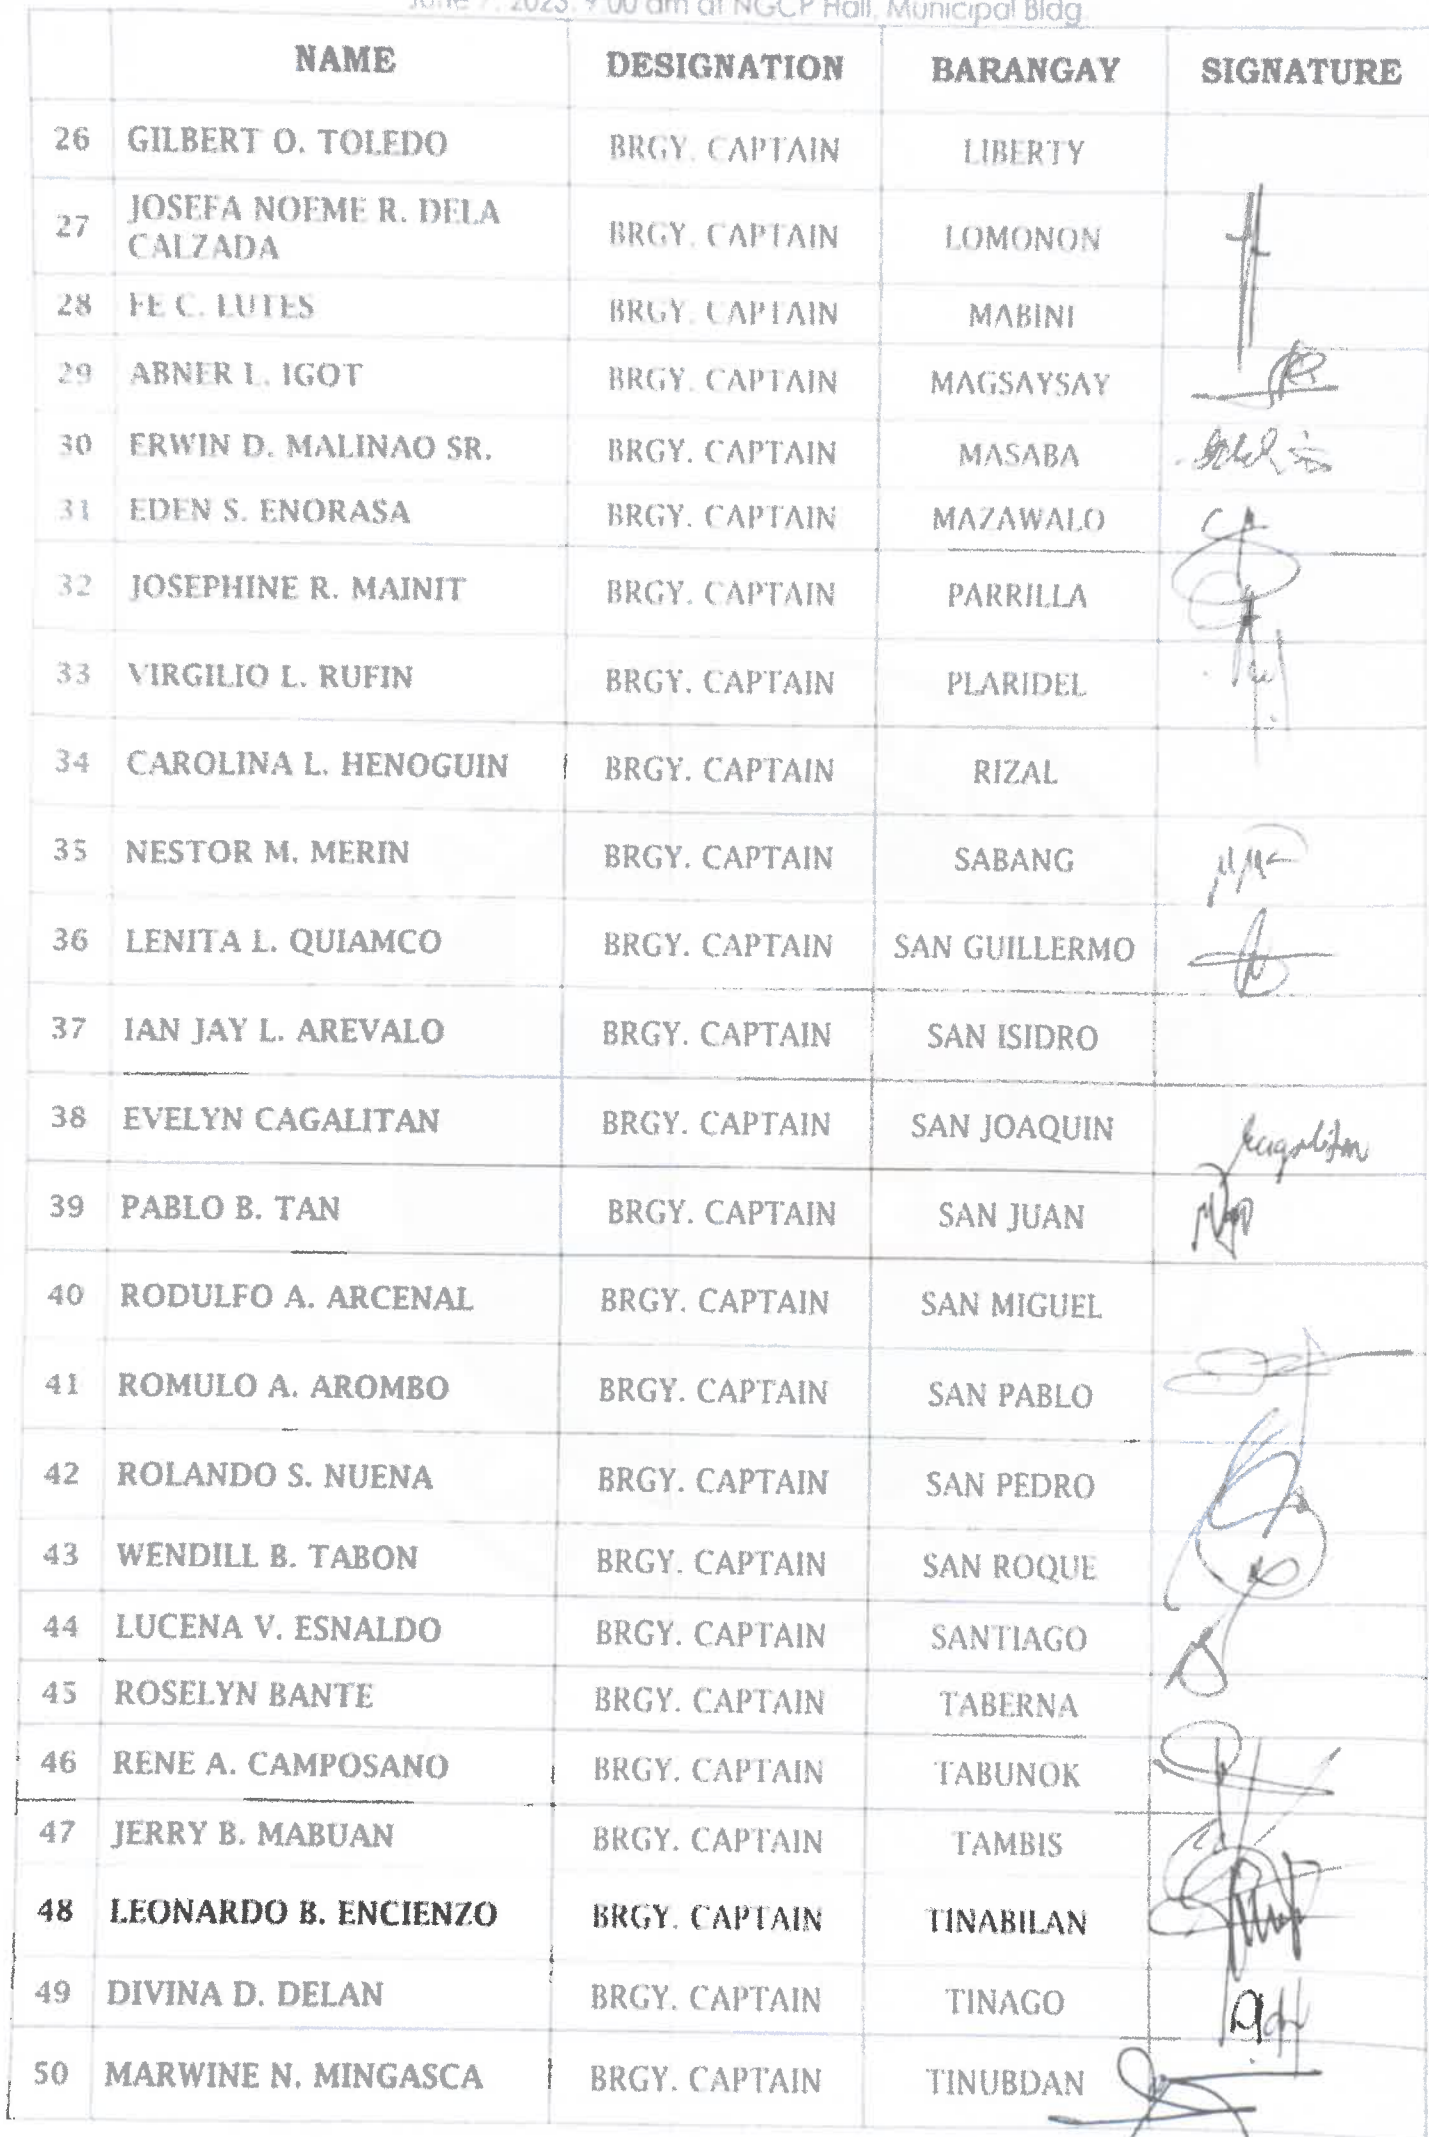 June 7, 2023, 9:00 am at NGCP Hall, Municipal Bldg.
NAME DESIGNATION BARANGAY SIGNATURE
26 GILBERT O. TOLEDO BRGY. CAPTAIN LIBERTY
27 JOSEFA NOEME R. DELA CALZADA BRGY. CAPTAIN LOMONON
28 FE C. LUTES BRGY. CAPTAIN MABINI
29 ABNER L. IGOT BRGY. CAPTAIN MAGSAYSAY
30 ERWIN D. MALINAO SR. BRGY. CAPTAIN MASABA
31 EDEN S. ENORASA BRGY. CAPTAIN MAZAWALO
32 JOSEPHINE R. MAINIT BRGY. CAPTAIN PARRILLA
33 VIRGILIO L. RUFIN BRGY. CAPTAIN PLARIDEL
34 CAROLINA L. HENOGUIN BRGY. CAPTAIN RIZAL
35 NESTOR M. MERIN BRGY. CAPTAIN SABANG
36 LENITA L. QUIAMCO BRGY. CAPTAIN SAN GUILLERMO
37 IAN JAY L. AREVALO BRGY. CAPTAIN SAN ISIDRO
38 EVELYN CAGALITAN BRGY. CAPTAIN SAN JOAQUIN
39 PABLO B. TAN BRGY. CAPTAIN SAN JUAN
40 RODULFO A. ARCENAL BRGY. CAPTAIN SAN MIGUEL
41 ROMULO A. AROMBO BRGY. CAPTAIN SAN PABLO
42 ROLANDO S. NUENA BRGY. CAPTAIN SAN PEDRO
43 WENDILL B. TABON BRGY. CAPTAIN SAN ROQUE
44 LUCENA V. ESNALDO BRGY. CAPTAIN SANTIAGO
45 ROSELYN BANTE BRGY. CAPTAIN TABERNA
46 RENE A. CAMPOSANO BRGY. CAPTAIN TABUNOK
47 JERRY B. MABUAN BRGY. CAPTAIN TAMBIS
48 LEONARDO B. ENCIENZO BRGY. CAPTAIN TINABILAN
49 DIVINA D. DELAN BRGY. CAPTAIN TINAGO
50 MARWINE N. MINGASCA BRGY. CAPTAIN TINUBDAN